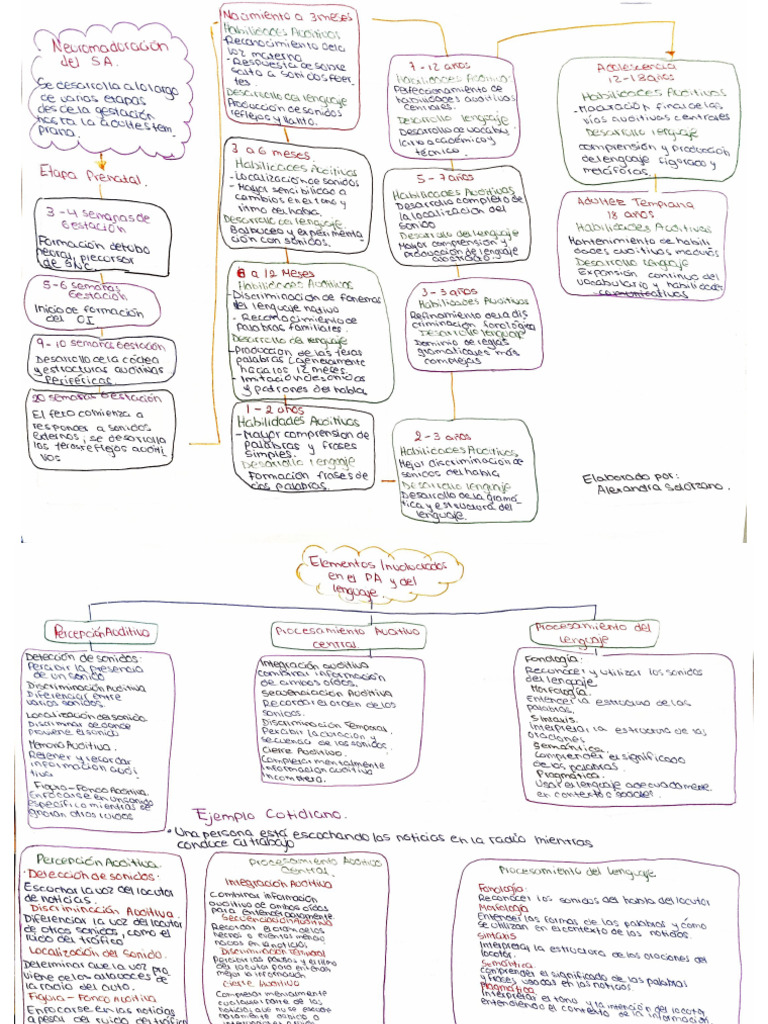 Neuromaduración
del S.A.
Se desarrolla a lo largo
de varios etapas
desde la gestación
hasta la adultes tem
prana.
Etapa Prenatal.
3 - 4 semanas de
Gestación
Formación del tubo
neural, precursor
de SNC.
5-6 semanas
Gestación
Inicio de formación
del OI
9 - 10 semanas Gestación
Desarrollo de la cóclea
y estructuras auditivas
Periféricas.
20 semanas Gestación
El feto comienza a
responder a sonidos
Externos, se desarrolla
los 1eros reflejos auditi
vos
Nacimiento a 3 meses
Habilidades Auditivas
Reconocimiento de la
voz materna
- Respuesta de sobre
salto a sonidos fuer-
tes.
Desarrollo del lenguaje
Producción de sonidos
reflejos y llanto.
3 a 6 meses
Habilidades Auditivas
- Localización de sonidos
- Mayor sencibilidad a
cambios en el tono y
ritmo del habla.
Desarrollo del lenguaje
Balbuceo y experimenta
ción con sonidos.
6 a 12 Meses
Habilidades Auditivas
- Discriminación de fonemas
del lenguaje nativo
- Reconocimiento de
palabras familiares.
Desarrollo del lenguaje
- Producción de las 1eras
palabras (generalmente
hacia los 12 meses.
- Imitación de sonidos
y patrones del habla.
1 - 2 años
Habilidades Auditivas
- Mayor comprensión de
palabras y frases
simples.
Desarrollo lenguaje
Formación frases de
dos palabras.
7 - 12 años
Habilidades Auditivas
Perfeccionamiento de
habilidades auditivas
centrales.
Desarrollo lenguaje
Desarrollo de vocabu
lario académico y
técnico.
5 - 7 años
Habilidades Auditivas
Desarrollo completo de
la localización del
sonido
Desarrollo del lenguaje
Mayor comprensión y
producción de lenguaje
abstracto.
3 - 5 años
Habilidades Auditivas
Refinamiento de la dis
criminación fonológica
Desarrollo lenguaje
Dominio de reglas
gramaticales más
complejas
2 - 3 años
Habilidades Auditivas
Mejor discriminación de
sonidos del habla
Desarrollo lenguaje
Desarrollo de la gramá
tica y estructura del
lenguaje.
Adolescencia
12 - 18 años
Habilidades Auditivas
Maduración final de las
vías auditivas centrales
Desarrollo lenguaje
comprensión y producción
del lenguaje figurado y
metáforas.
Adultez Temprana
18 años
Habilidades Auditivas
Mantenimiento de habili
dades auditivas maduras
Desarrollo lenguaje
Expansión continua del
vocabulario y habilidades
comunicativas
Elaborado por:
Alexandra Solórzano.
Elementos Involucrados
en el PA y del
lenguaje.
Percepción Auditiva
Detección de sonidos:
Percibir la presencia
de un sonido
Discriminación Auditiva
Diferenciar entre
varios sonidos.
Localización del sonido
Discriminar de donde
proviene el sonido
Memoria Auditiva.
Retener y recordar
información audi
tiva
Figura - Fondo Auditiva.
Enfocarse en un sonido
específico mientras se
ignoran otros ruidos
Procesamiento Auditivo
central.
Integración auditiva
combinar información
de ambos oídos.
Secuenciación Auditiva
Recordar el orden de los
sonidos.
Discriminación Temporal
Percibir la duración y
secuencia de los sonidos.
Cierre Auditivo.
Completar mentalmente
información auditiva
incompleta.
Procesamiento del
lenguaje
Fonología:
Reconocer y utilizar los sonidos
del lenguaje
Morfología:
Entender la estructura de las
palabras.
Sintaxis.
Interpretar la estructura de las
oraciones
Semántica.
Comprender el significado
de las palabras.
Pragmática:
Usar el lenguaje adecuadamente
en contextos sociales.
Ejemplo Cotidiano.
• Una persona está escuchando las noticias en la radio mientras
conduce al trabajo
Percepción Auditiva.
• Detección de sonidos.
Escuchar la voz del locutor
de noticias.
Discriminación Auditiva.
Diferenciar la voz del locutor
de otros sonidos, como el
ruido del tráfico.
Localización del sonido.
Determinar que la voz pro
viene de los altavoces de
la radio del auto.
Figura - Fondo Auditiva
Enfocarse en las noticias
a pesar del ruido del tráfico
Procesamiento Auditivo
Central.
Integración Auditiva
Combinar información
auditiva de ambos oídos
para entender
Secuenciación Auditiva
Recordar el orden de los
hechos o eventos menc
nados en la noticia.
Discriminación Temporal
Percibir las pausas y el ritmo
del locutor para entender
mejor la información
Cierre Auditivo
Completar mentalmente
cualquier parte de las
noticias que no se escuche
Procesamiento del lenguaje
Fonología:
Reconocer los sonidos del habla del locutor
Morfología
Entender las formas de las palabras y cómo
se utilizan en el contexto de las noticias.
Sintáxis
Interpretar la estructura de las oraciones del
locutor.
Semántica.
Comprender el significado de las palabras
y frases usadas en las noticias.
Pragmática
Interpretar el tono y la intención del locutor
entendiendo el contexto de la información